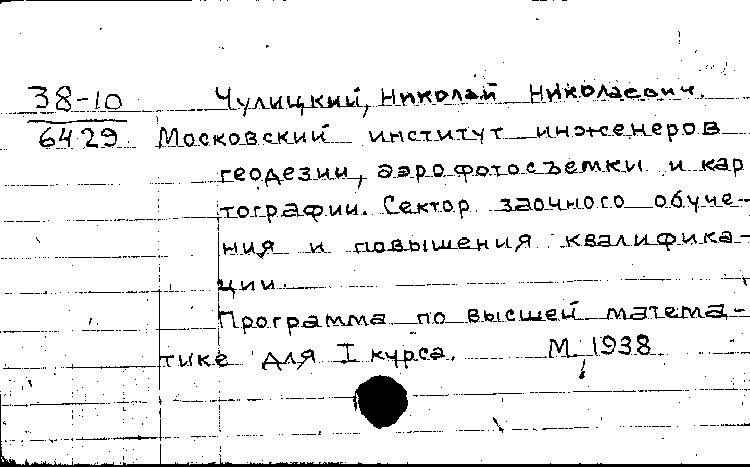 38-10
6429
Чулицкий, Николай Николаевич.
Московский институт инженеров
геодезии, аэрофотосъемки и кар
тографии. Сектор заочного обуче-
ния и повышения квалифика-
ции.
Программа по высшей матема-
тике для I курса. М, 1938